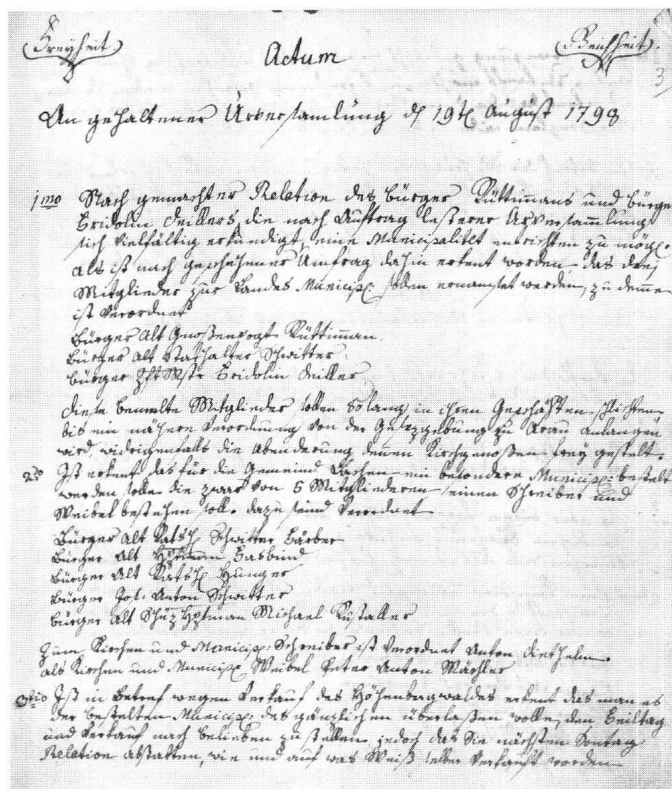 Freyheit. Actum Gleichheit.
3
An gehaltener Urversamlung d 19t August 1798
1mo Nach gemachter Relation des Bürger Rüttimans und Bürger
Fridolin die nach Auftrag lesterer Urversammlung
sich vielfältig erkundigt, eine Municipalitet entrichten zu mög.
als ist nach geschehener Umfrag dahin erkent worden das drej
Mitglieder zur Landes Municip: sollen ernamset werden, zu denne
ist verordnet
Bürger Alt Gnoßenvogt Rüttiman.
Bürger Alt Stathalter Schwitter.
Bürger Fridolin
Diese bemelte Mitglieder sollen so lang in ihren Geschäften
bis ein nähere Verordnung von der Gesezgebung zu Arau anlangen
wird, widrigenfalls die Abenderung denen Kirchgenoßen frey gestelt.
2do Ist erkent das für die Gemeind Lachen ein besondere Municip: bestelt
werden solle die zwar von 5 Mitgliederen einen Schreiber und
Weibel bestehen solle. dazu sind verordnet
Bürger Alt Rathsh Schwitter Färber
Bürger Alt
Bürger Alt Rathsh Hunger
Bürger Jos: Anton Schwitter
Bürger Alt Schüz Hptman Michael
Zum Kirchen und Municip: Schreiber ist verordnet Anton Diethelm.
als Kirchen und Municip Weibel Peter Anton Mächler
3tio Ist in betref wegen Verkauf des erkent das man es
der bestelten Municip: des gänzlichen überlaßen wolle, den Feiltag
und Verkauf nach belieben zu stellen jedoch das Sie nächsten Sontag
Relation abstatten, wie und auf was Weiß selber verkauft worden